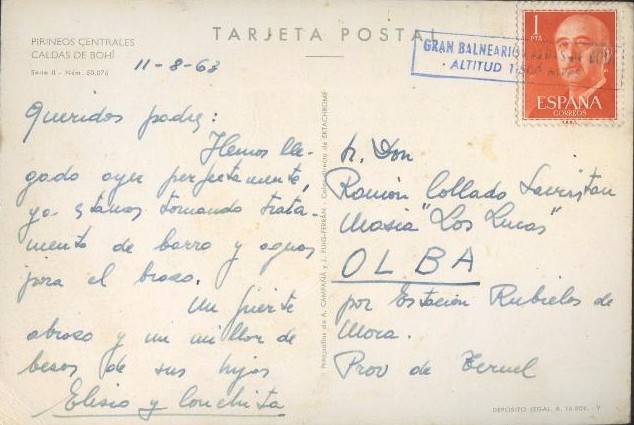 TARJETA POSTAL
PIRINEOS CENTRALES
CALDAS DE BOHÍ
Serie II - Núm. 50.076
11-8-63
GRAN BALNEARIO
ALTITUD
1
PTA
ESPAÑA
CORREOS
Queridos padres:
Hemos lle-
gado ayer perfectamente,
ya estamos tomando trata-
miento de barro y aguas
para el brazo.
Un fuerte
abrazo y un millor de
besos de sus hijos
Elisio y Conchita
Fotografías de A. CAMPAÑÁ y J. PUIG-FERRÁN
Sr. Don
Ramón Collado
Masia "Los Lucas"
OLBA
por Estación Rubielos de
Mora.
Prov de Teruel
DEPÓSITO LEGAL, B.